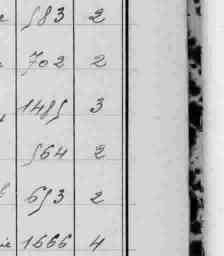 583 2
702 2
1485 3
564 2
653 2
1666 4